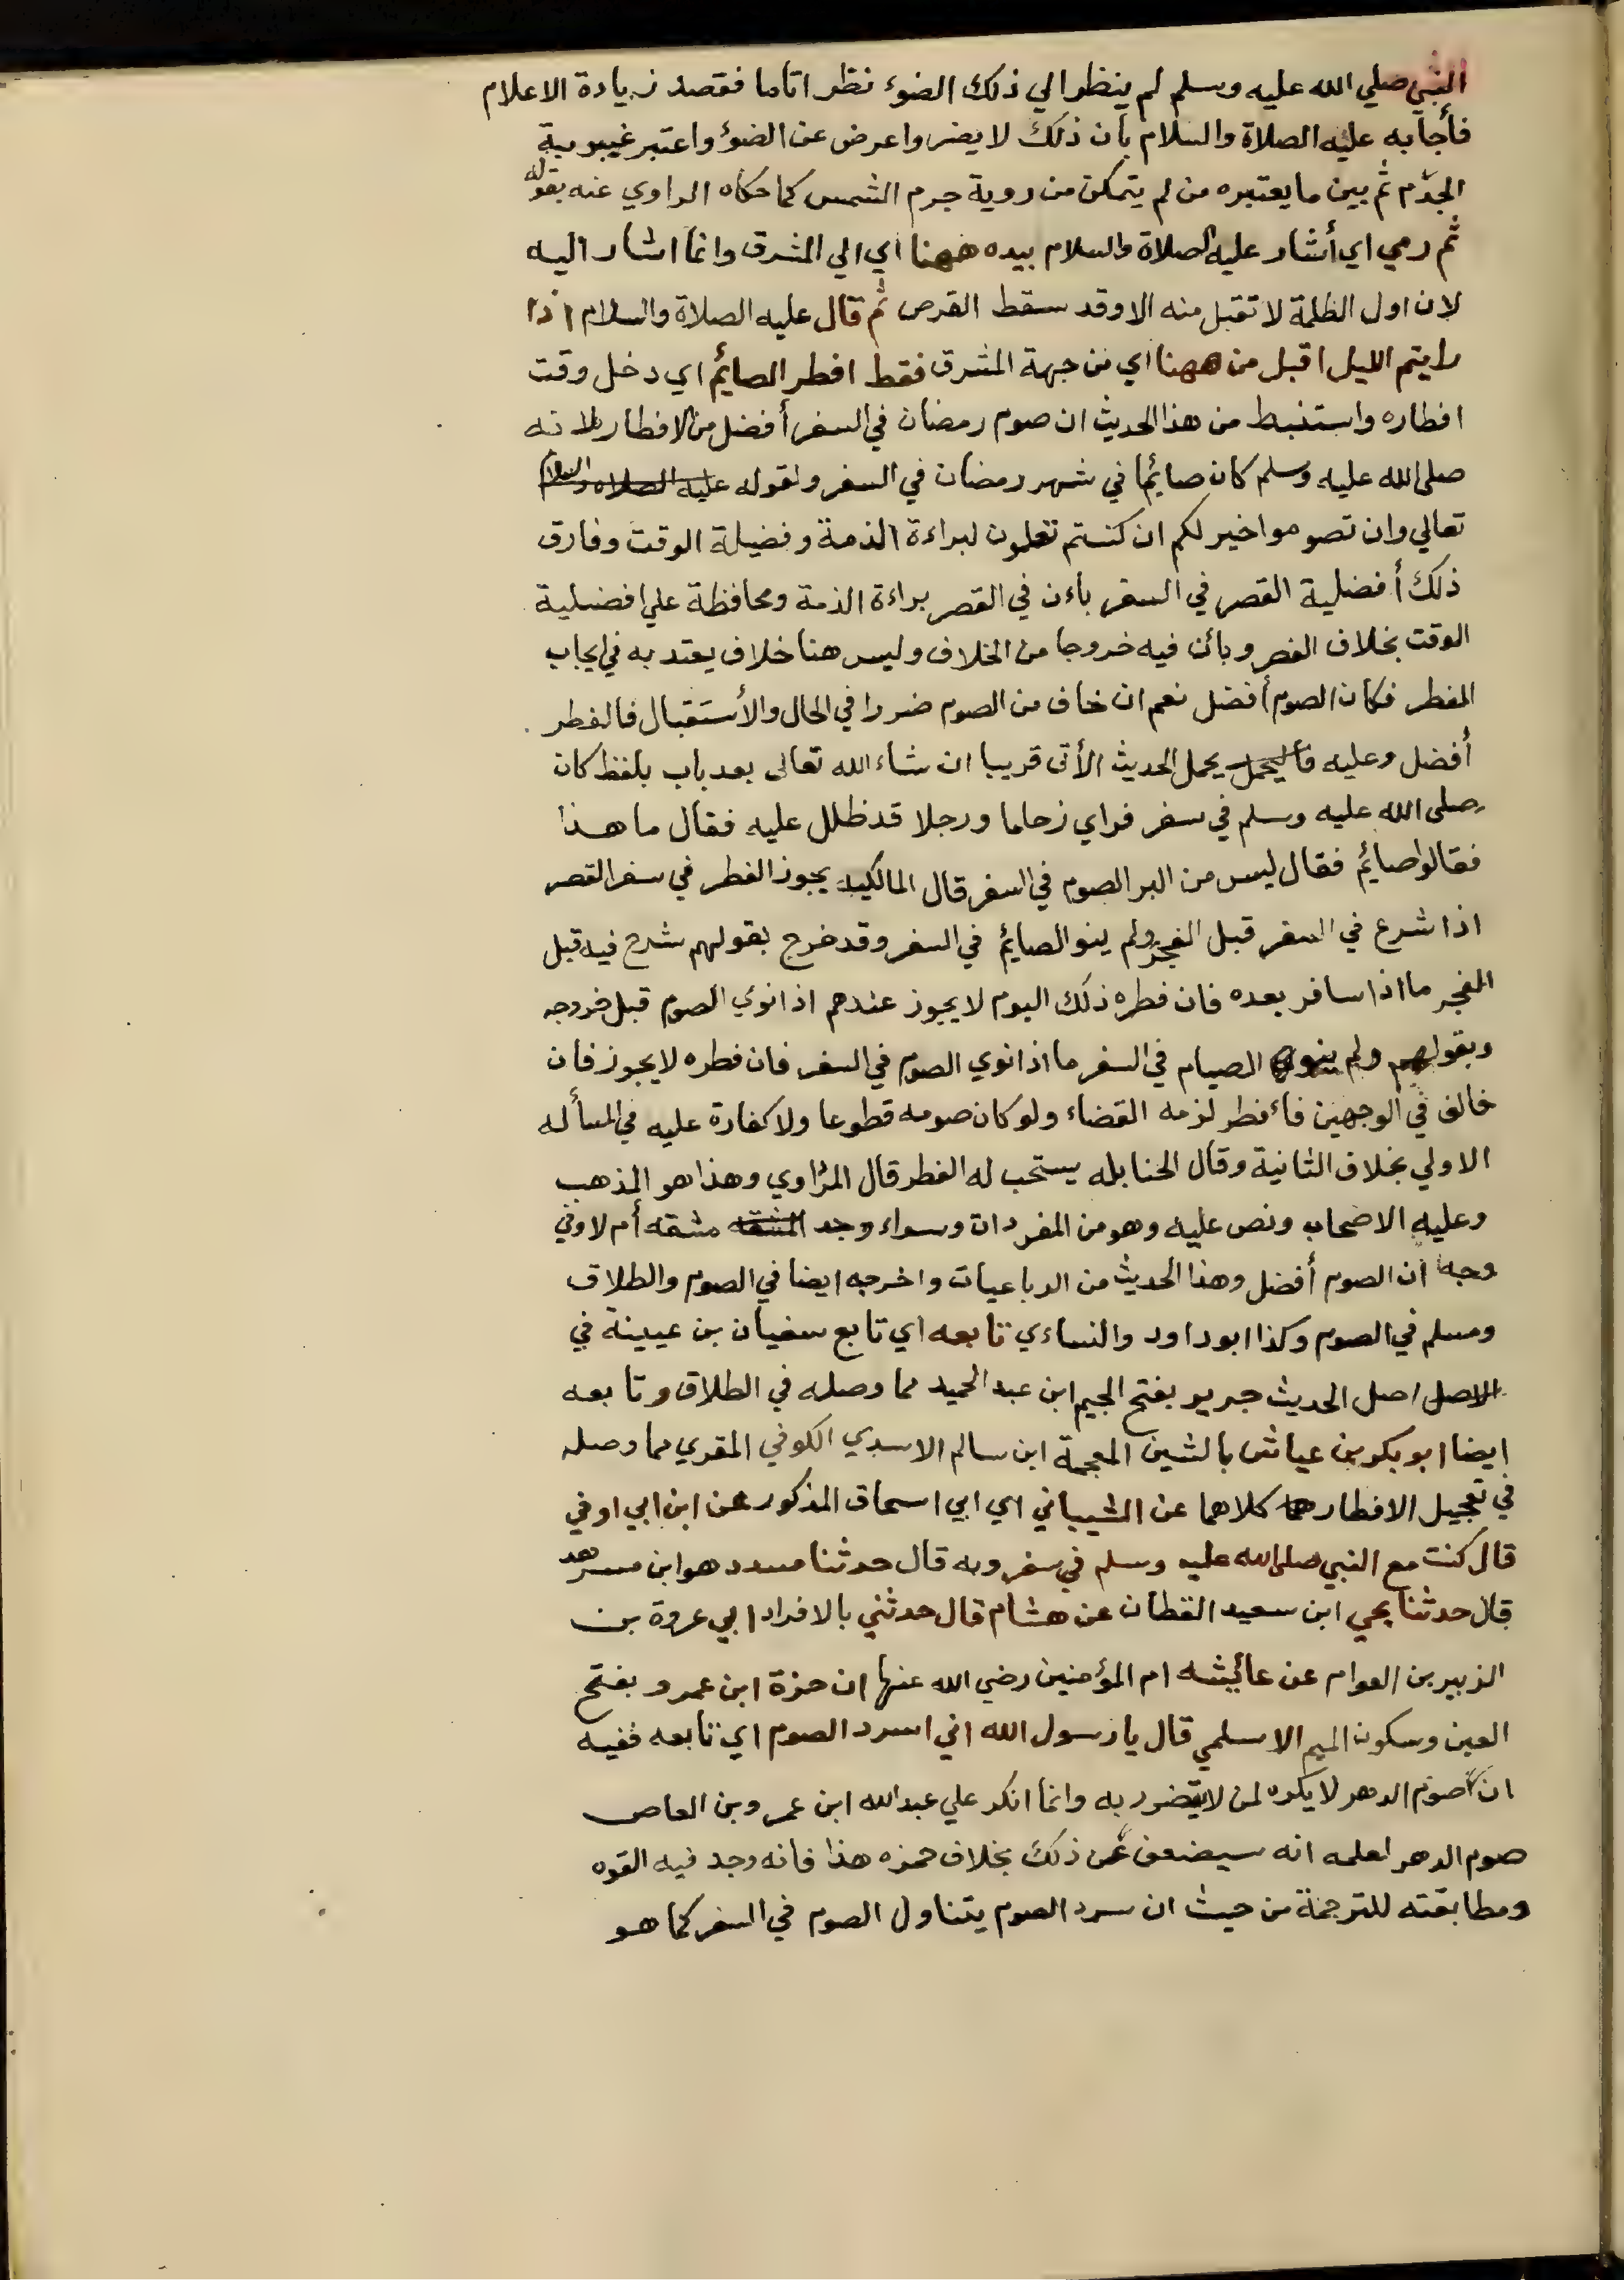 النبي صلي الله عليه وسلم لم ينظر الي ذلك الضوء نظرا تاما فقصد زيادة الاعلام
فأجابه عليه الصلاة والسلام بأن ذلك لا يضر واعرض عن الضوء واعتبر غيبوبة
الجرم ثم بين ما يعتبره من لم يتمكن من روية جرم الشمس كما حكاه الراوي عنه بقوله
ثم رمي اي أشار عليه الصلاة والسلام بيده ههنا اي الي المشرق وانما اشار اليه
لان اول الظلمة لا تقبل منه الا وقد سقط القرص ثم قال عليه الصلاة والسلام اذا
رايتم الليل اقبل من ههنا اي من جهة المشرق فقط افطر الصائم اي دخل وقت
افطاره واستنبط من هذا الحديث ان صوم رمضان في السفر أفضل من الافطار لانه
صلى الله عليه وسلم كان صائما في شهر رمضان في السفر ولقوله عليه الصلاه والسلام
تعالي وان تصوموا خير لكم ان كنتم تعلمون لبراءة الذمة وفضيلة الوقت وفارق
ذلك أفضلية القصر في السفر بأن في القصر براءة الذمة ومحافظة علي افضلية
الوقت بخلاف الفطر وبأن فيه خروجا من الخلاف وليس هنا خلاف يعتد به في ايجاب
الفطر فكان الصوم أفضل نعم ان خاف من الصوم ضررا في الحال والأستقبال فالفطر
أفضل وعليه يحمل الحديث الأتى قريبا ان شاء الله تعالى بعد باب بلفظ كان
صلى الله عليه وسلم في سفر فراي زحاما ورجلا قد ظلل عليه فقال ما هذا
فقالوا صائم فقال ليس من البر الصوم في السفر قال المالكيه يجوز الفطر في سفر القصر
اذا شرع في السفر قبل الفجر ولم ينو الصائم في السفر وقد خرج بقولهم شرع فيه قبل
الفجر ما اذا سافر بعده فان فطره ذلك اليوم لا يجوز عندهم اذا نوي الصوم قبل خروجه
وبقولهم ولم ينو الصيام في السفر ما اذا نوي الصوم في السفر فان فطره لا يجوز فان
خالف في الوجهين فأفطر لزمه القضاء ولو كان صومه تطوعا ولا كفارة عليه في المسأله
الاولي بخلاف الثانية وقال الحنابله يستحب له الفطر قال المرداوي وهذا هو المذهب
وعليه الاصحاب ونص عليه وهو من المفردات وسواء وجد المشقه مشقه أم لا وفي
وجه ان الصوم أفضل وهذا الحديث من الرباعيات واخرجه ايضا في الصوم والطلاق
ومسلم في الصوم وكذا ابوداود والنساءي تابعه اي تابع سفيان بن عيينة في
الاصل اصل الحديث جرير بفتح الجيم ابن عبد الحميد مما وصله في الطلاق وتابعه
ايضا ابو بكر بن عياش بالشين المعجمة ابن سالم الاسدي الكوفي المقري مما وصله
في تعجيل الافطار كلاهما عن الشيباني اي ابي اسحاق المذكور عن ابن ابي اوفي
قال كنت مع النبي صلى الله عليه وسلم في سفر وبه قال حدثنا مسدد هو ابن مسرهد
قال حدثنا يحي ابن سعيد القطان عن هشام قال حدثني بالافراد ابي عروة بن
الزبير بن العوام عن عائيشه ام المؤمنين رضي الله عنها ان حمزة ابن عمرو بفتح
العين وسكون الميم الاسلمي قال يا رسول الله اني اسرد الصوم اي تابعه ففيه
ان صوم الدهر لا يكره لمن لا يتضرر به وانما انكر علي عبدالله ابن عمرو بن العاص
صوم الدهر لعلمه انه سيضعف عن ذلك بخلاف حمزه هذا فانه وجد فيه القوه
ومطابقته للترجمة من حيث ان سرد الصوم يتناول الصوم في السفر كما هو